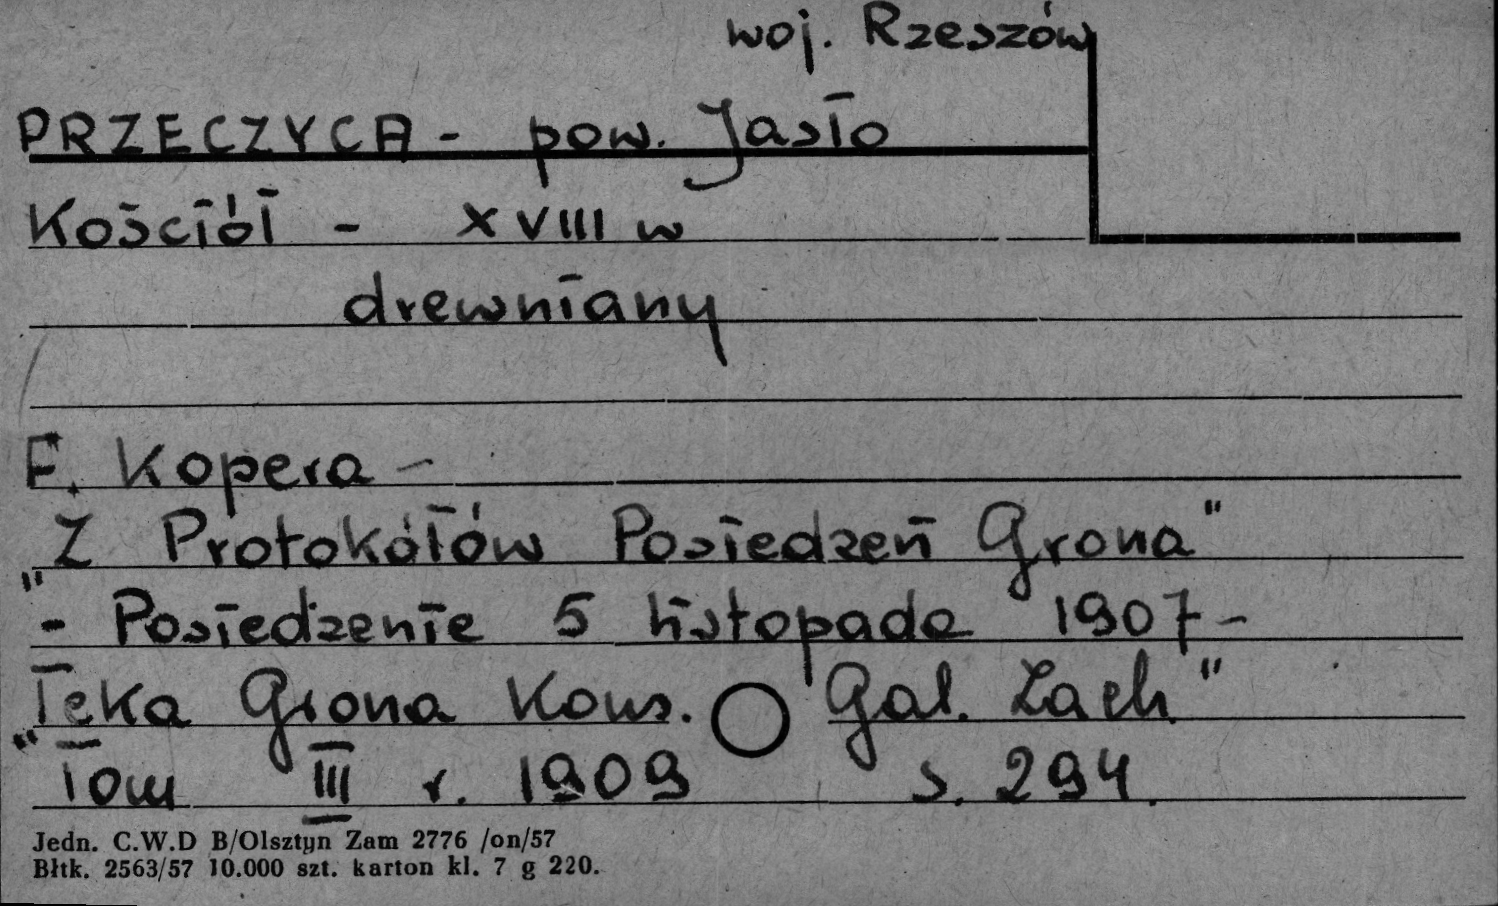 woj. Rzeszów
PRZECZYCA - pow. Jasło
Kościół - XVIII w
drewniany
F. Kopera -
"Z Protokółów Posiedzeń Grona"
- Posiedzenie 5 listopada 1907 -
"Teka Grona Kons. Gal. Zach"
Tom III r. 1909 s. 294.
Jedn. C.W.D B/Olsztyn Zam 2776 /on/57
Błtk. 2563/57 10.000 szt. karton kl. 7 g 220.